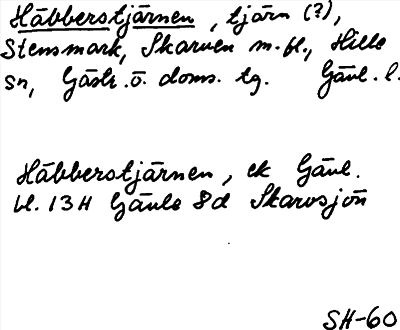 Häbberstjärnen, tjärn (?),
Stensmark, Skarven m. fl., Hille
sn, Gästr. ö. doms. tg. Gävl. l.
Häbberstjärnen, ek Gävl.
bl. 13H Gävle 8d Skarvsjön
SH-60